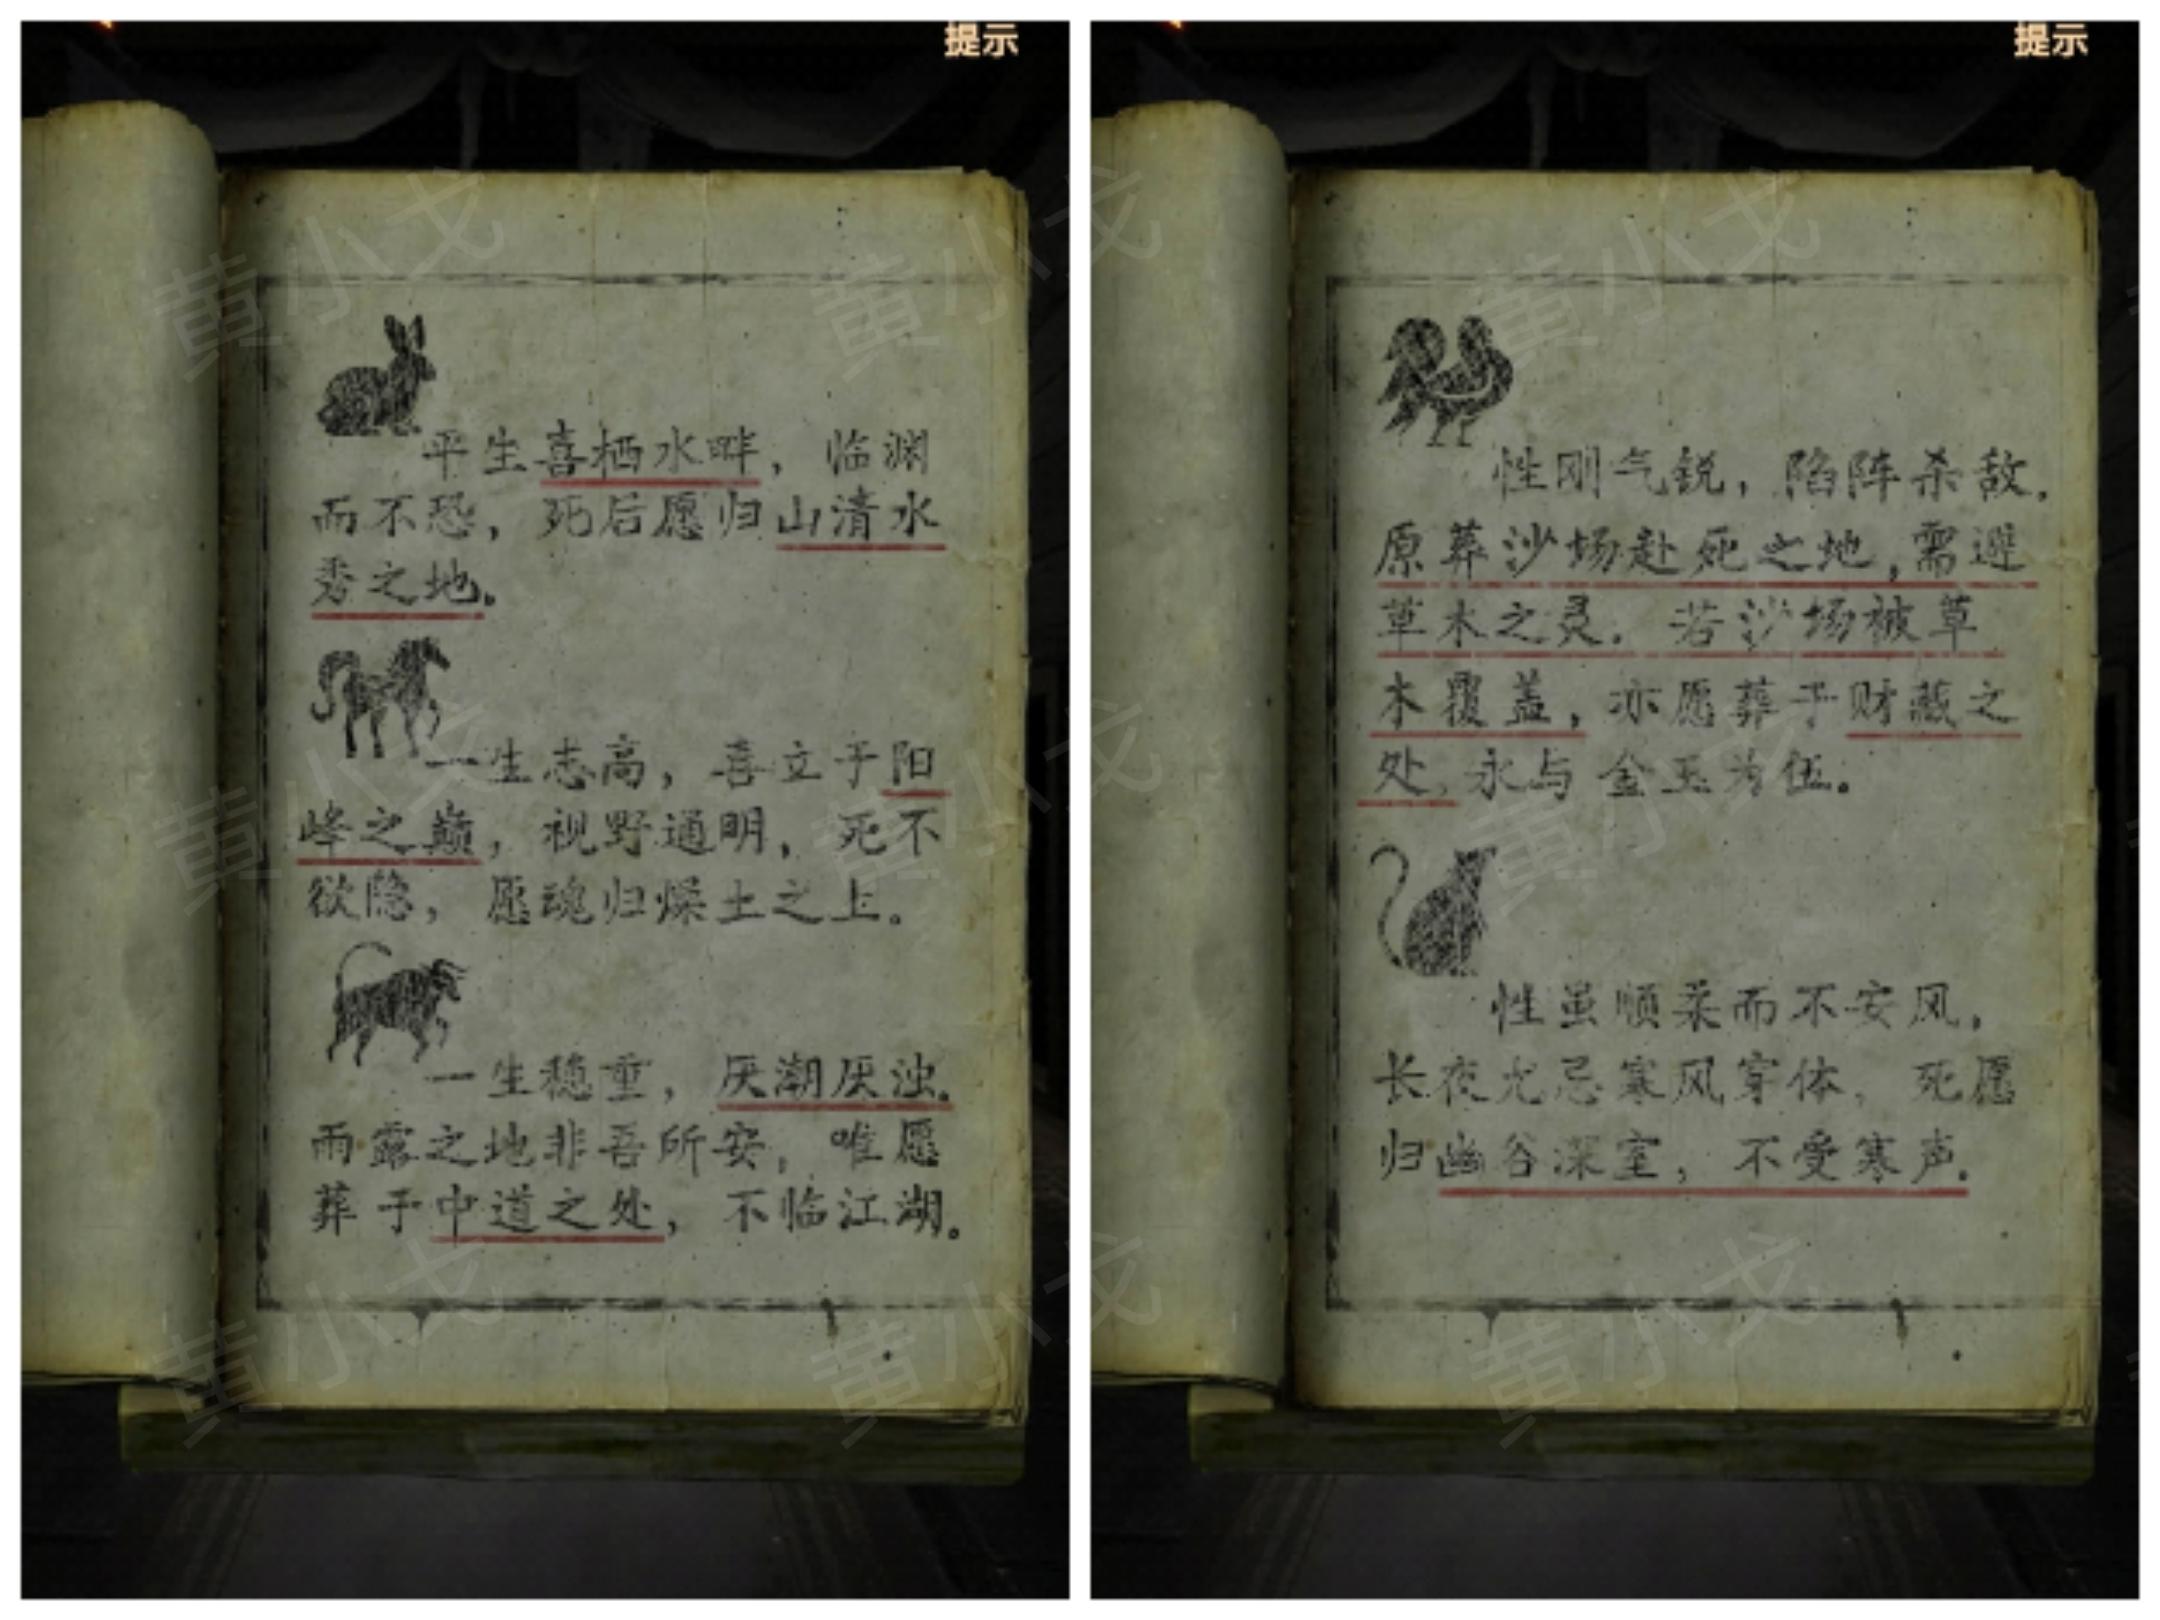 提示
平生喜栖水畔，临渊
而不恐，死后愿归山清水
秀之地。
一生志高，喜立于阳
峰之巅，视野通明，死不
欲隐，愿魂归燥土之上。
一生稳重，厌潮厌浊。
雨露之地非吾所安，唯愿
葬于中道之处，不临江湖。
提示
性刚气锐，陷阵杀敌，
原葬沙场赴死之地，需避
草木之灵．若沙场被草
木覆盖，亦愿葬于财藏之
处，永与金玉为伍。
性虽顺柔而不安风，
长夜尤忌寒风穿体，死愿
归幽谷深室，不受寒声。
黄小戈